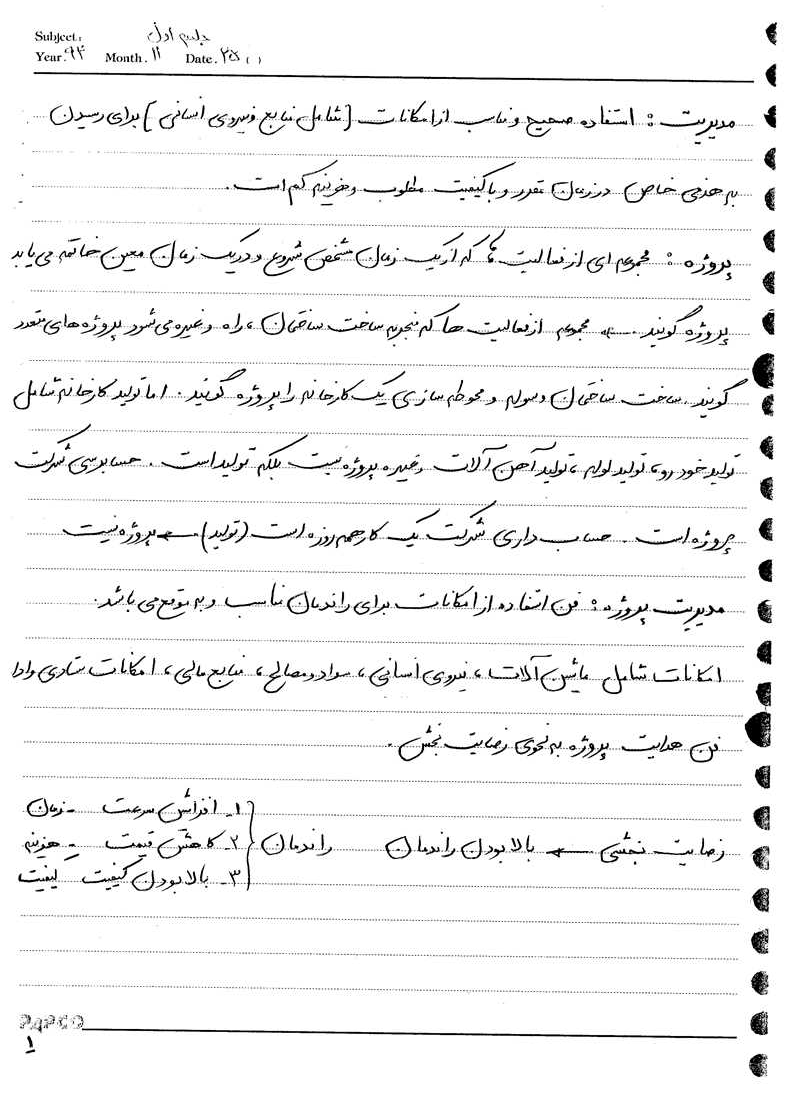 Subject: جلسه اول
Year. ۹۴ Month. ۱۱ Date. ۲۵ ( )
مدیریت : استفاده صحیح و مناسب از امکانات (شامل منابع و نیروی انسانی) برای رسیدن
به هدفی خاص در زمان مقدر و با کیفیت مطلوب و هزینه کم است.
پروژه : مجموعه ای از فعالیت ها که از یک زمان مشخص شروع و در یک زمان معین خاتمه می یابد
پروژه گویند. ← مجموعه از فعالیت ها که منجر به ساخت ساختمان ، راه و غیره می شود پروژه های متعدد
گویند. ساخت ساختمان و سوله و محوطه سازی یک کارخانه را پروژه گویند . اما تولید کارخانه شامل
تولید خودرو ، تولید لوله ، تولید آهن آلات و غیره پروژه نیست بلکه تولید است . حسابرسی شرکت
پروژه است . حساب داری شرکت یک کار همه روزه است (تولید) ← پروژه نیست
مدیریت پروژه : فن استفاده از امکانات برای راندمان مناسب و به موقع می باشد.
امکانات شامل ماشین آلات ، نیروی انسانی ، مواد و مصالح ، منابع مالی ، امکانات ستادی و ادا
فن هدایت پروژه به نحوی رضایت بخش .
رضایت بخشی ← بالا بودن راندمان راندمان
۱- افزایش سرعت - زمان
۲- کاهش قیمت - هزینه
۳- بالا بودن کیفیت کیفیت
PAPCO
۱